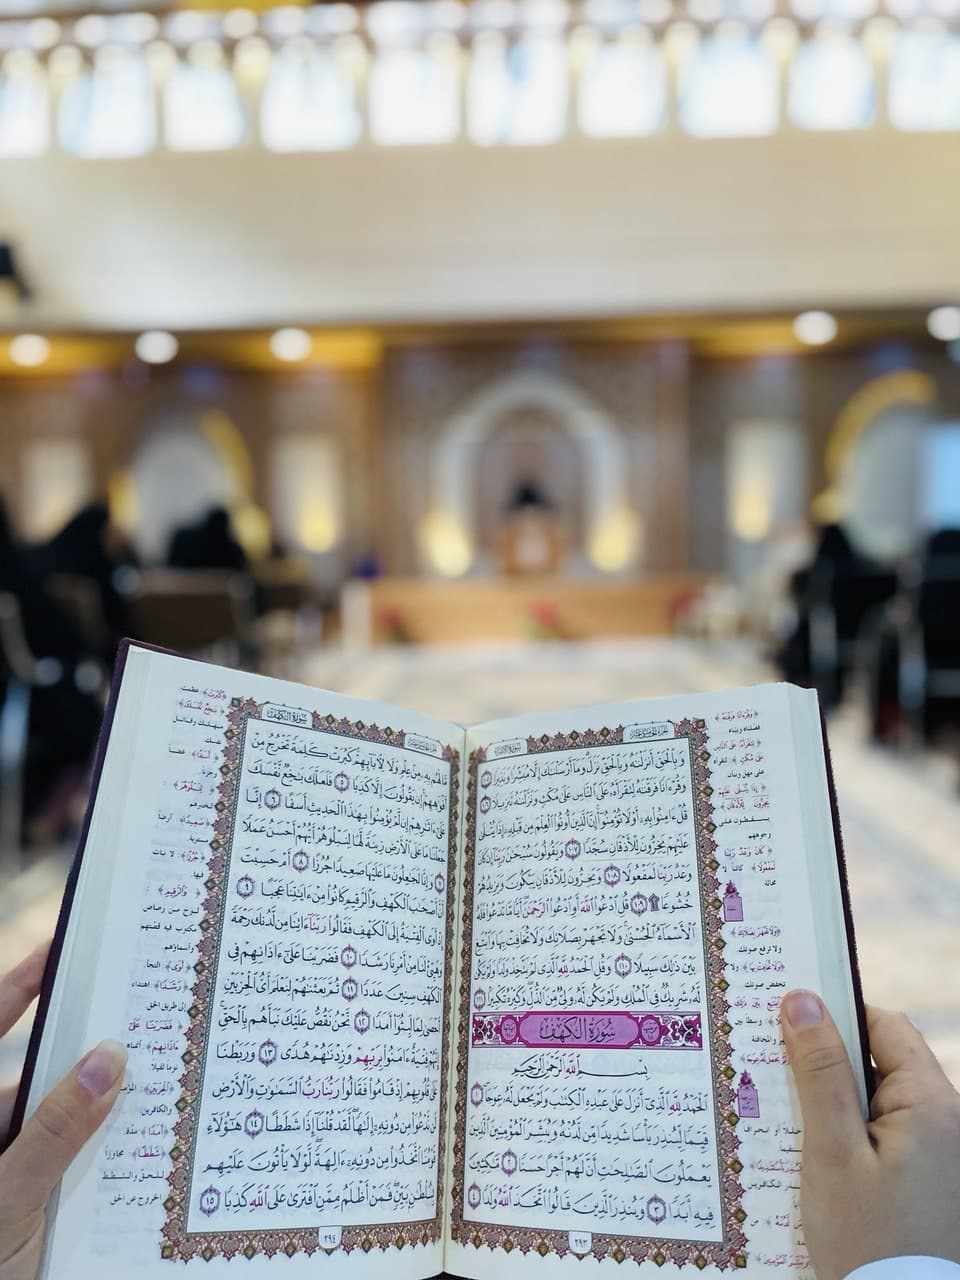 سُورَةُ الإِسْرَاءِ
وَبِالْحَقِّ أَنزَلْنَٰهُ وَبِالْحَقِّ نَزَلَ وَمَا أَرْسَلْنَٰكَ إِلَّا مُبَشِّرًا وَنَذِيرًا ١٠٥
وَقُرْءَانًا فَرَقْنَٰهُ لِتَقْرَأَهُۥ عَلَى النَّاسِ عَلَىٰ مُكْثٍ وَنَزَّلْنَٰهُ تَنزِيلًا ١٠٦
قُلْ ءَامِنُوا۟ بِهِۦٓ أَوْ لَا تُؤْمِنُوٓا۟ إِنَّ الَّذِينَ أُوتُوا۟ الْعِلْمَ مِن قَبْلِهِۦٓ إِذَا يُتْلَىٰ
عَلَيْهِمْ يَخِرُّونَ لِلْأَذْقَانِ سُجَّدًا ١٠٧ وَيَقُولُونَ سُبْحَٰنَ رَبِّنَآ إِن كَانَ
وَعْدُ رَبِّنَا لَمَفْعُولًا ١٠٨ وَيَخِرُّونَ لِلْأَذْقَانِ يَبْكُونَ وَيَزِيدُهُمْ
خُشُوعًا ۩ ١٠٩ قُلِ ادْعُوا۟ اللَّهَ أَوِ ادْعُوا۟ الرَّحْمَٰنَ أَيًّا مَّا تَدْعُوا۟ فَلَهُ
الْأَسْمَآءُ الْحُسْنَىٰ وَلَا تَجْهَرْ بِصَلَاتِكَ وَلَا تُخَافِتْ بِهَا وَابْتَغِ
بَيْنَ ذَٰلِكَ سَبِيلًا ١١٠ وَقُلِ الْحَمْدُ لِلَّهِ الَّذِى لَمْ يَتَّخِذْ وَلَدًا وَلَمْ يَكُن
لَّهُۥ شَرِيكٌ فِى الْمُلْكِ وَلَمْ يَكُن لَّهُۥ وَلِىٌّ مِّنَ الذُّلِّ وَكَبِّرْهُ تَكْبِيرًا ١١١
سُورَةُ الكَهْفِ
بِسْمِ اللَّهِ الرَّحْمَٰنِ الرَّحِيمِ
الْحَمْدُ لِلَّهِ الَّذِىٓ أَنزَلَ عَلَىٰ عَبْدِهِ الْكِتَٰبَ وَلَمْ يَجْعَل لَّهُۥ عِوَجَا ١
قَيِّمًا لِّيُنذِرَ بَأْسًا شَدِيدًا مِّن لَّدُنْهُ وَيُبَشِّرَ الْمُؤْمِنِينَ الَّذِينَ
يَعْمَلُونَ الصَّٰلِحَٰتِ أَنَّ لَهُمْ أَجْرًا حَسَنًا ٢ مَّٰكِثِينَ
فِيهِ أَبَدًا ٣ وَيُنذِرَ الَّذِينَ قَالُوا۟ اتَّخَذَ اللَّهُ وَلَدًا ٤
٢٩٣
سُورَةُ الكَهْفِ
مَّا لَهُم بِهِۦ مِنْ عِلْمٍ وَلَا لِءَابَآئِهِمْ كَبُرَتْ كَلِمَةً تَخْرُجُ مِنْ
أَفْوَٰهِهِمْ إِن يَقُولُونَ إِلَّا كَذِبًا ٥ فَلَعَلَّكَ بَٰخِعٌ نَّفْسَكَ
عَلَىٰٓ ءَاثَٰرِهِمْ إِن لَّمْ يُؤْمِنُوا۟ بِهَٰذَا الْحَدِيثِ أَسَفًا ٦ إِنَّا
جَعَلْنَا مَا عَلَى الْأَرْضِ زِينَةً لَّهَا لِنَبْلُوَهُمْ أَيُّهُمْ أَحْسَنُ عَمَلًا
٧ وَإِنَّا لَجَٰعِلُونَ مَا عَلَيْهَا صَعِيدًا جُرُزًا ٨ أَمْ حَسِبْتَ
أَنَّ أَصْحَٰبَ الْكَهْفِ وَالرَّقِيمِ كَانُوا۟ مِنْ ءَايَٰتِنَا عَجَبًا ٩
إِذْ أَوَى الْفِتْيَةُ إِلَى الْكَهْفِ فَقَالُوا۟ رَبَّنَآ ءَاتِنَا مِن لَّدُنكَ رَحْمَةً
وَهَيِّئْ لَنَا مِنْ أَمْرِنَا رَشَدًا ١٠ فَضَرَبْنَا عَلَىٰٓ ءَاذَانِهِمْ فِى
الْكَهْفِ سِنِينَ عَدَدًا ١١ ثُمَّ بَعَثْنَٰهُمْ لِنَعْلَمَ أَىُّ الْحِزْبَيْنِ
أَحْصَىٰ لِمَا لَبِثُوٓا۟ أَمَدًا ١٢ نَّحْنُ نَقُصُّ عَلَيْكَ نَبَأَهُم بِالْحَقِّ
إِنَّهُمْ فِتْيَةٌ ءَامَنُوا۟ بِرَبِّهِمْ وَزِدْنَٰهُمْ هُدًى ١٣ وَرَبَطْنَا
عَلَىٰ قُلُوبِهِمْ إِذْ قَامُوا۟ فَقَالُوا۟ رَبُّنَا رَبُّ السَّمَٰوَٰتِ وَالْأَرْضِ
لَن نَّدْعُوَا۟ مِن دُونِهِۦٓ إِلَٰهًا لَّقَدْ قُلْنَآ إِذًا شَطَطًا ١٤ هَٰٓؤُلَآءِ
قَوْمُنَا اتَّخَذُوا۟ مِن دُونِهِۦٓ ءَالِهَةً لَّوْلَا يَأْتُونَ عَلَيْهِم
بِسُلْطَٰنٍ بَيِّنٍ فَمَنْ أَظْلَمُ مِمَّنِ افْتَرَىٰ عَلَى اللَّهِ كَذِبًا ١٥
٢٩٤